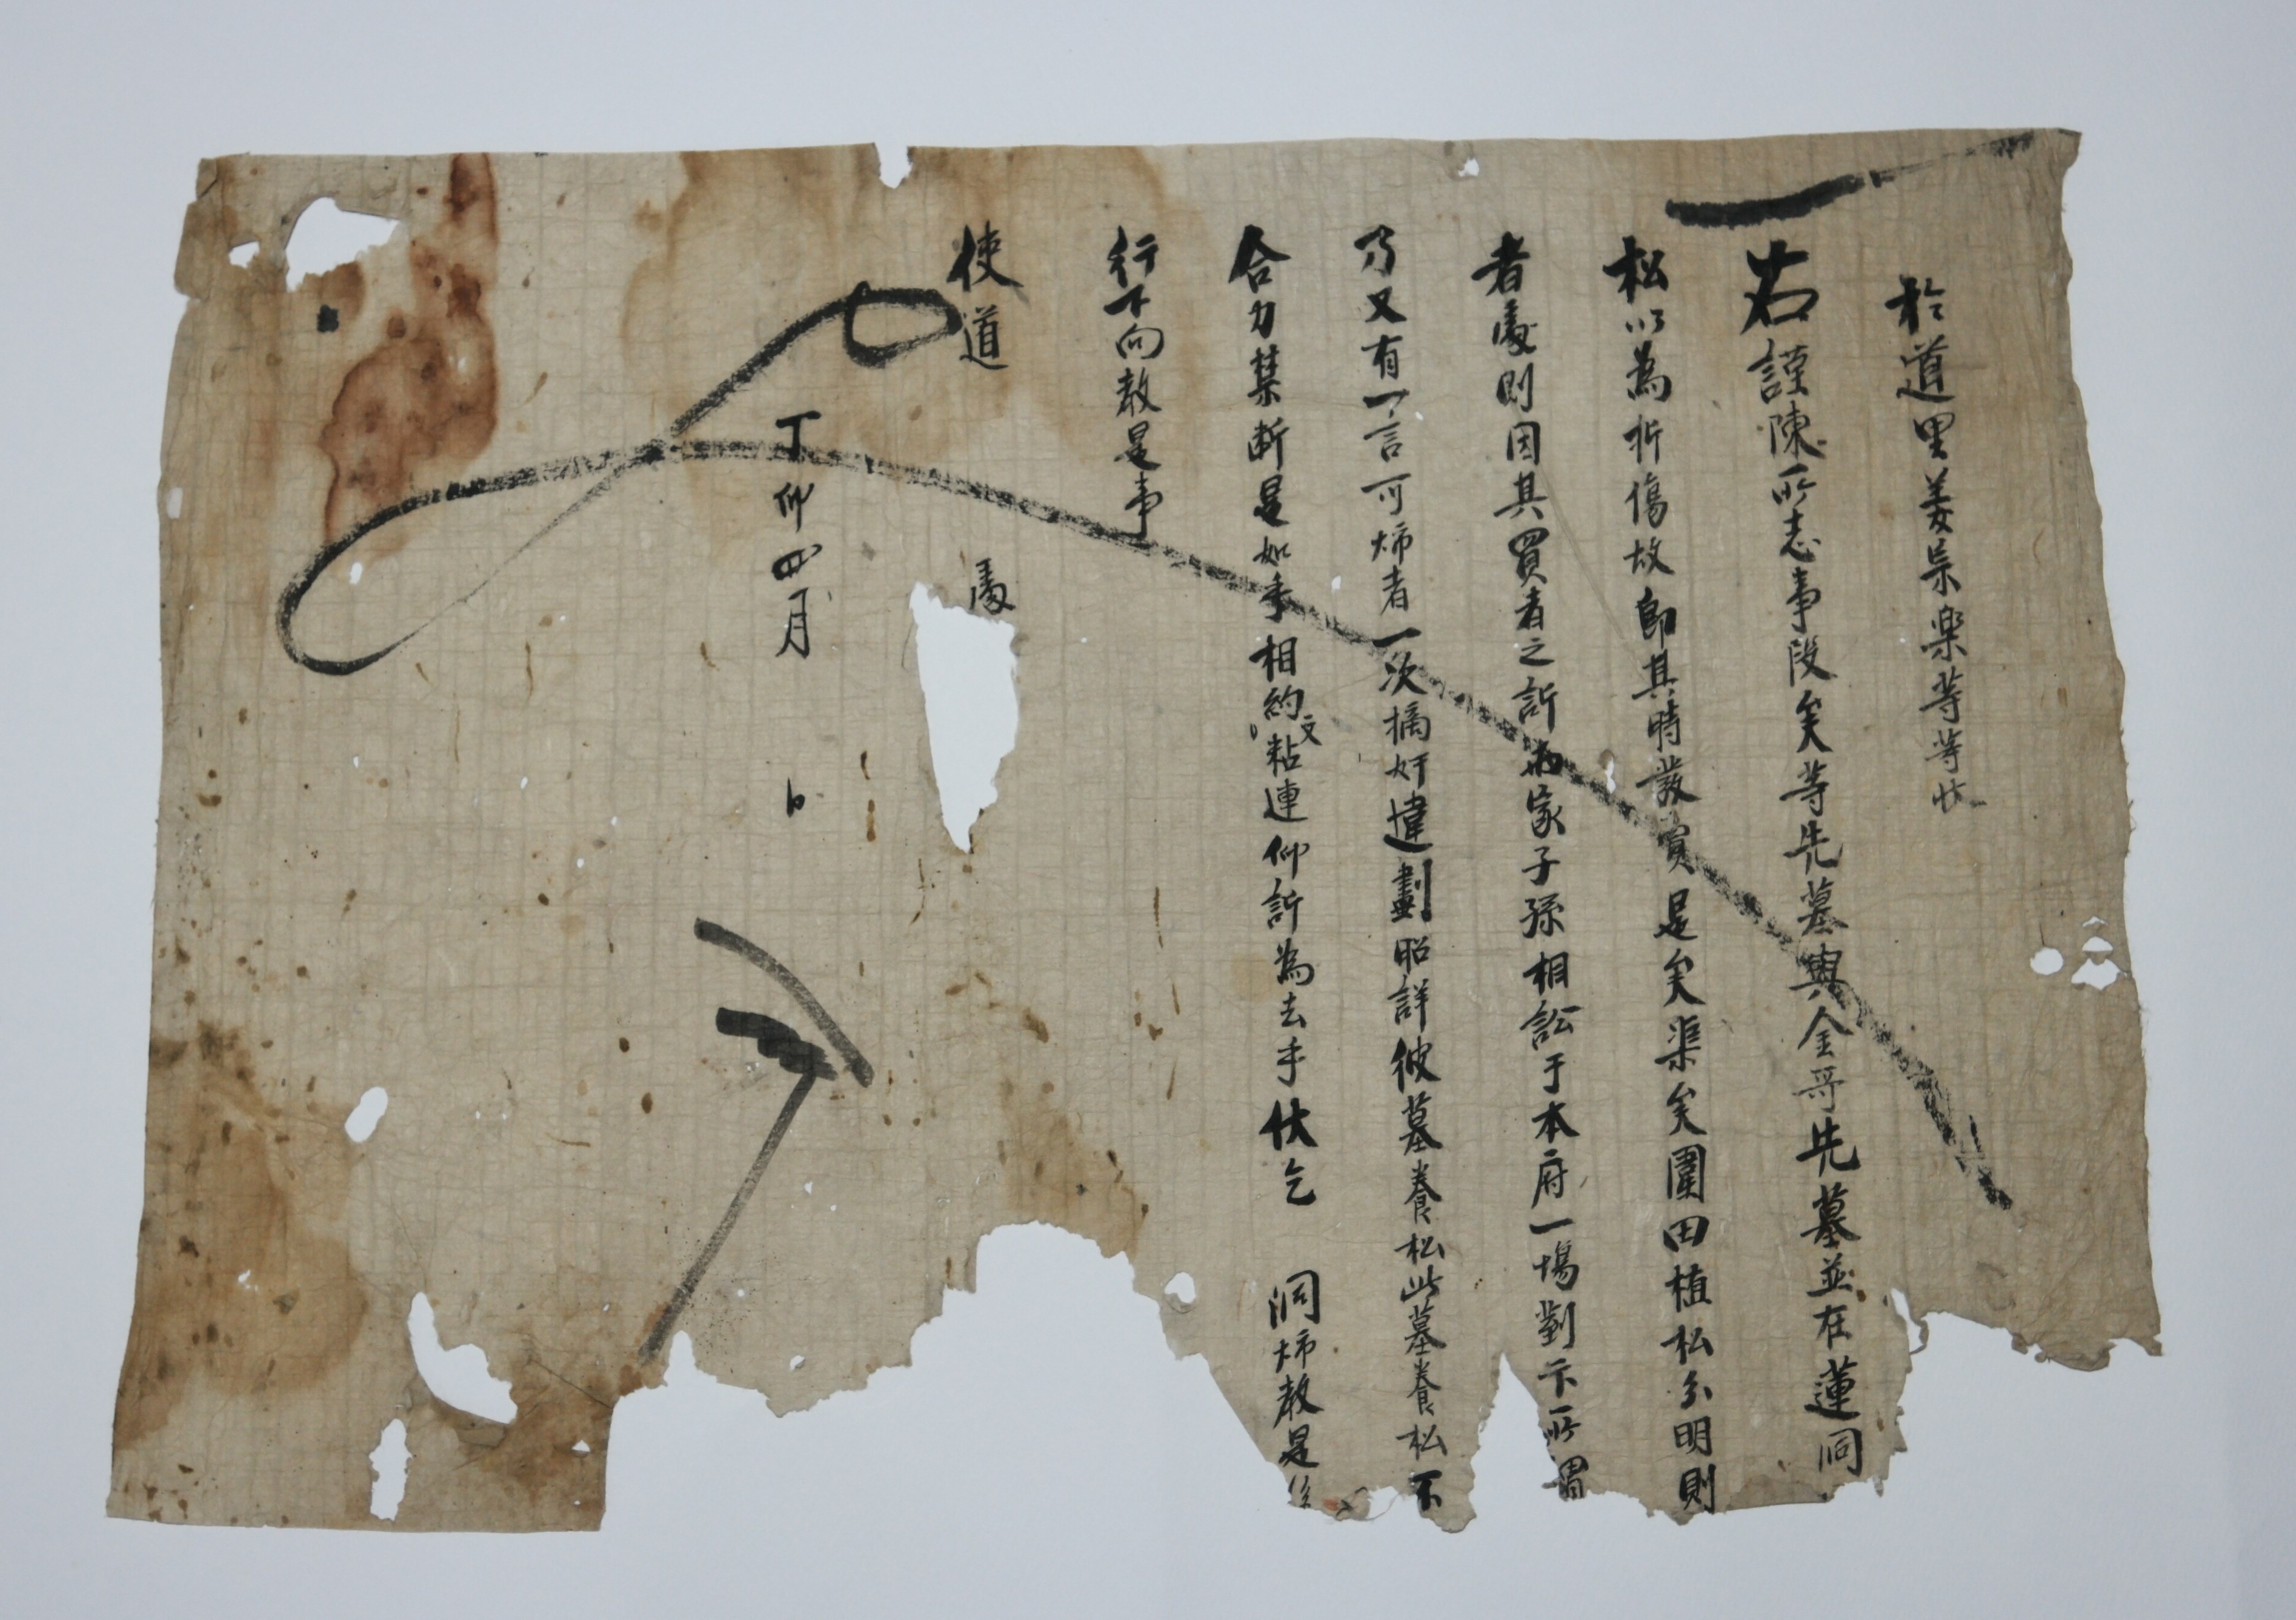 於道里姜宗樂等等狀
右謹陳所志事段矣等先墓與金哥先墓並在蓮洞
松以爲折傷故卽其時發賣是矣渠矣圍田植松分明則
者處則因其買者之訴兩家子孫相訟于本府一場劃下所謂
乃又有一言可燭者一次摘奸違劃昭詳彼墓養松此墓養松不
合力禁斷是如乎相約文粘連仰訴爲去乎伏乞 洞燭敎是後
行下向敎是事
使道 處
丁卯四月 日